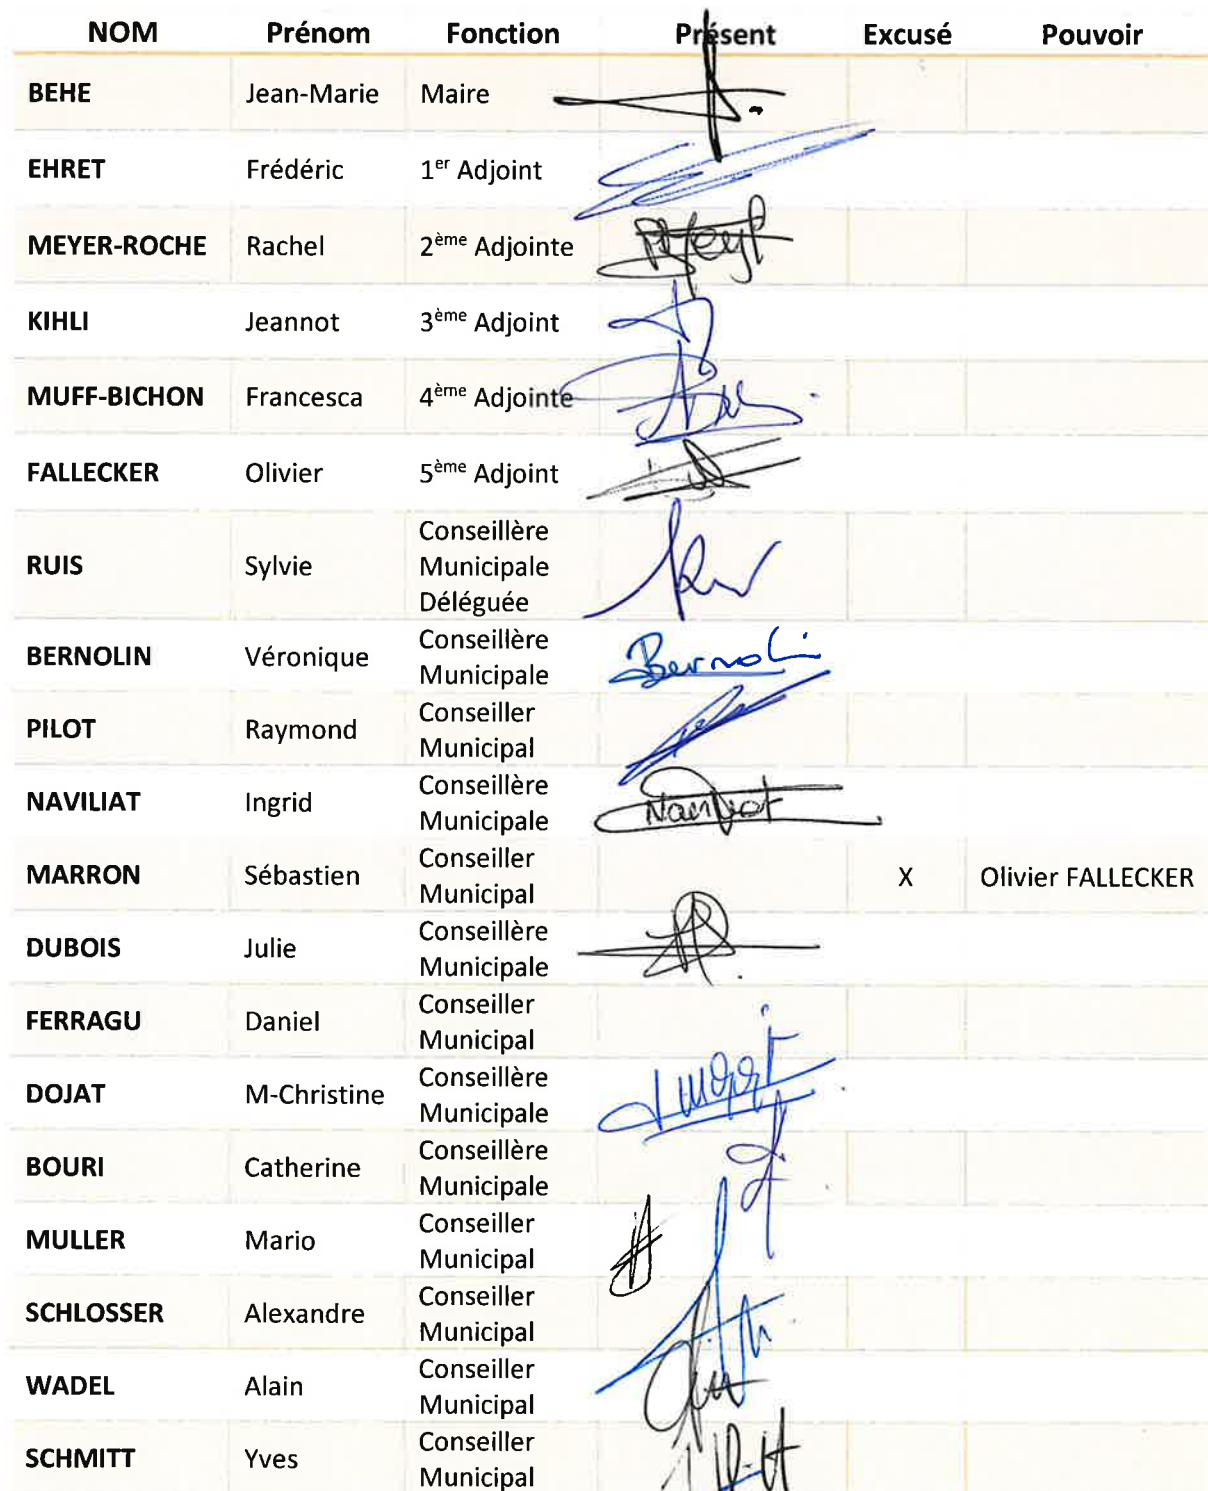 NOM Prénom Fonction Présent Excusé Pouvoir
BEHE Jean-Marie Maire
EHRET Frédéric 1er Adjoint
MEYER-ROCHE Rachel 2ème Adjointe
KIHLI Jeannot 3ème Adjoint
MUFF-BICHON Francesca 4ème Adjointe
FALLECKER Olivier 5ème Adjoint
RUIS Sylvie Conseillère
Municipale
Déléguée
BERNOLIN Véronique Conseillère
Municipale Bernolin
PILOT Raymond Conseiller
Municipal
NAVILIAT Ingrid Conseillère
Municipale
MARRON Sébastien Conseiller
Municipal X Olivier FALLECKER
DUBOIS Julie Conseillère
Municipale
FERRAGU Daniel Conseiller
Municipal
DOJAT M-Christine Conseillère
Municipale
BOURI Catherine Conseillère
Municipale
MULLER Mario Conseiller
Municipal
SCHLOSSER Alexandre Conseiller
Municipal
WADEL Alain Conseiller
Municipal
SCHMITT Yves Conseiller
Municipal